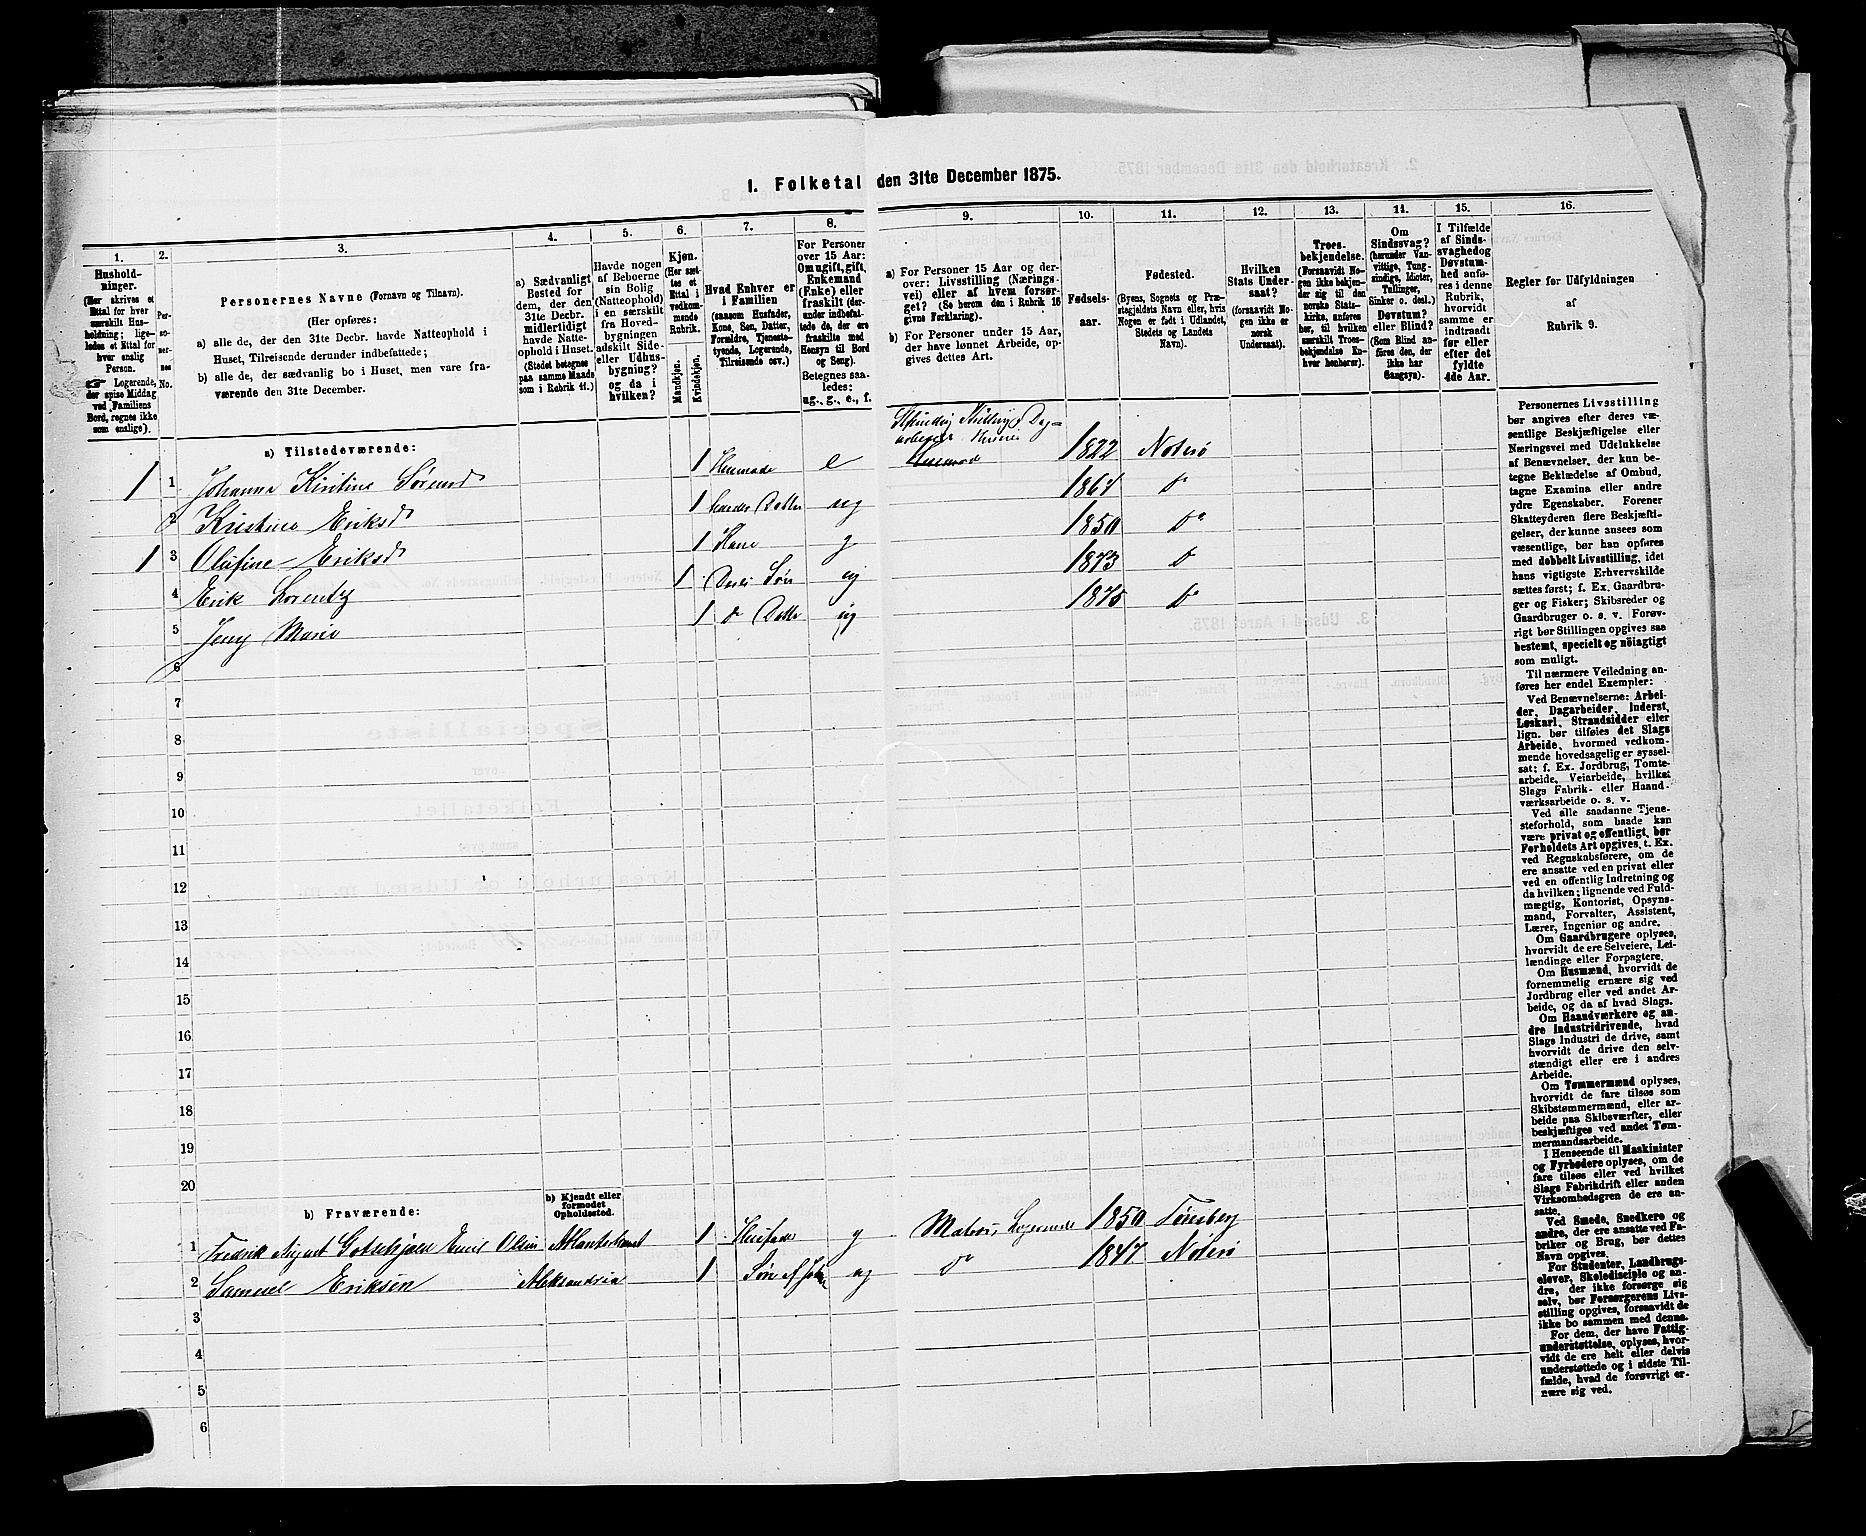 1. Folketal den 31te December 1875.
1.
Hushold-
ninger.
(Her skrives et
Ettal for hver
særskilt Hus-
holdning; lige-
ledes et Ettal for
hver enslig
Person.
Logerende,
der spise Middag
ved Familiens
Bord, regnes ikke
som enslige).
2.
Per-
so-
ner-
nes
No.
3.
Personernes Navne (Fornavn og Tilnavn).
(Her opføres:
a) alle de, der den 31te Decbr. havde Natteophold i
Huset, Tilreisende derunder indbefattede;
b) alle de, der sædvanlig bo i Huset, men vare fra-
værende den 31te December.
4.
a) Sædvanligt
Bosted for
dem, der den
31te Decbr.
midlertidigt
havde Natte-
ophold i Huset.
(Stedet betegnes
paa samme Maade
som i Rubrik 11.)
5.
Havde nogen
af Beboerne
sin Bolig
(Natteophold)
i en særskilt
fra Hoved-
bygningen
adskilt Side-
eller Udhus-
bygning?
og da i
hvilken?
6.
Kjøn.
(Her sæt-
tes et
Ettal i
vedkom-
mende
Rubrik.
Mandkjøn.
Kvindekjøn.
7.
Hvad Enhver er
i Familien
(saasom Husfader,
Kone, Søn, Datter,
Forældre, Tjeneste-
tyende, Logerende,
Tilreisende osv.)
8.
For Personer
over 15 Aar:
Om ugift, gift,
Enkemand
(Enke) eller
fraskilt (der-
under indbefat-
tede de, der ere
fraskilte med
Hensyn til Bord
og Seng).
Betegnes saa-
ledes:
ug., g., e., f.
9.
a) For Personer 15 Aar og der-
over: Livsstilling (Nærings-
vei) eller af hvem forsør-
get? (Se herom den i Rubrik 16
givne Forklaring).
b) For Personer under 15 Aar,
der have lønnet Arbeide, op-
gives dettes Art.
10.
Fødsels-
aar.
11.
Fødested.
(Byens, Sognets og Præ-
stegjeldets Navn eller, hvis
Nogen er født i Udlandet,
Stedets og Landets
Navn).
12.
Hvilken
Stats Under-
saat?
(forsaavidt No-
gen ikke er
norsk
Undersaat).
13.
Troes-
bekjendelse.
(Forsaavidt No-
gen ikke bekjen-
der sig til den
norske Stats-
kirke, anføres
her, til hvilken
særskilt Troes-
bekjendelse En-
hver henhører).
14.
Om
Sindssvag?
(herunder Van-
vittige, Tung-
sindige, Idioter,
Tullinger,
Sinker o. desl.)
Døvstum?
eller Blind?
(Som Blind an-
føres den, der
ikke har
Gangsyn).
15.
I Tilfælde
af Sinds-
svaghed og
Døvstum-
hed anfø-
res i denne
Rubrik,
hvorvidt
samme er
indtraadt
før eller
efter det
fyldte
4de Aar.
16.
Regler for Udfyldningen
af
Rubrik 9.
a) Tilstedeværende:
1 1 Johanna Kirstine Sørensd 1 Husmoder e 1822 Nøterø
2 Kristine Eriksd 1 hendes Datter ug 1864 do
1 3 Olufine Eriksd 1 Kone g 1850 do
4 Erik Lorentz 1 Deres Søn ug 1873 do
5 Jeny Marie 1 do Datter ug 1875 do
6
7
8
9
10
11
12
13
14
15
16
17
18
19
20
b) Fraværende:
b) Kjendt eller
formodet
Opholdssted.
1 Fredrik August Emil Olsen Atlanterhavet 1 Husfader g Matros, 1850 Tønsberg
2 Samuel Eriksen Aleksandria 1 Søn af ug do 1847 Nøterø
3
4
5
6
Personernes Livsstilling
bør angives efter deres væ-
sentlige Beskjæftigelse eller
Næringsvei med Udelukkelse
af Benævnelser, der kun be-
tegne Beklædelse af Ombud,
tagne Examina eller andre
ydre Egenskaber. Forener
Skatteyderen flere Beskjæfti-
gelser, der kunne ansees som
væsentlige, bør han opføres
med dobbelt Livsstilling, idet
hans vigtigste Erhvervskilde
sættes først; f. Ex. Gaardbru-
ger og Fisker; Skibsreder og
Gaardbruger o. s. v. Forøv-
rigt bør Stillingen opgives saa
bestemt, specielt og nöiagtigt
som muligt.
Til nærmere Veiledning an-
føres her endel Exempler:
Ved Benævnelserne: Arbei-
der, Dagarbeider, Inderst,
Løskarl, Strandsidder eller
lign. bør tilføies det Slags
Arbeide, hvormed vedkom-
mende hovedsagelig er syssel-
sat; f. Ex. Jordbrug, Tomte-
arbeide, Veiarbeide, hvilket
Slags Fabrik- eller Haand-
værksarbeide o. s. v.
Ved alle saadanne Tjene-
steforhold, som baade kan
være privat og offentligt, bør
Forholdets Art opgives, t. Ex.
ved Regnskabsførere, om de
ere ansatte ved en privat eller
ved en offentlig Indretning og
da hvilken; lignende ved Fuld-
mægtig, Kontorist, Opsyns-
mand, Forvalter, Assistent,
Lærer, Ingeniør og andre.
Om Gaardbrugere oplyses,
hvorvidt de ere Selveiere, Lei-
lændinge eller Forpagtere.
Om Husmænd, hvorvidt de
fornemmelig ernære sig ved
Jordbrug eller ved andet Ar-
beide, og da af hvad Slags.
Om Haandværkere og an-
dre Industridrivende, hvad
Slags Industri de drive, samt
hvorvidt de drive den selv-
stændigt eller ere i andres
Arbeide.
Om Tømmermænd oplyses,
hvorvidt de fare tilsøs som
Skibstømmermænd, eller ar-
beide paa Skibsværfter, eller
beskjæftiges ved andet Tøm-
mermandsarbeide.
I Henseende til Maskinister
og Fyrbødere oplyses, om de
fare tilsøs eller ved hvilket
Slags Fabrikdrift eller anden
Virksomhedsgren de ere an-
satte.
Ved Smede, Snedkere og
andre, der ere ansatte ved Fa-
briker og Brug, bør dettes
Navn opgives.
For Studenter, Landbrugs-
elever, Skoledisciple og an-
dre, der ikke forsørge sig
selv, bør Forsørgerens Livs-
stilling opgives, forsaavidt de
ikke bo sammen med denne.
For dem, der have Fattig-
understøttelse, oplyses, hvor-
vidt de ere helt eller delvis
understøttede og i sidste Til-
fælde, hvad de forøvrigt er-
nære sig ved.